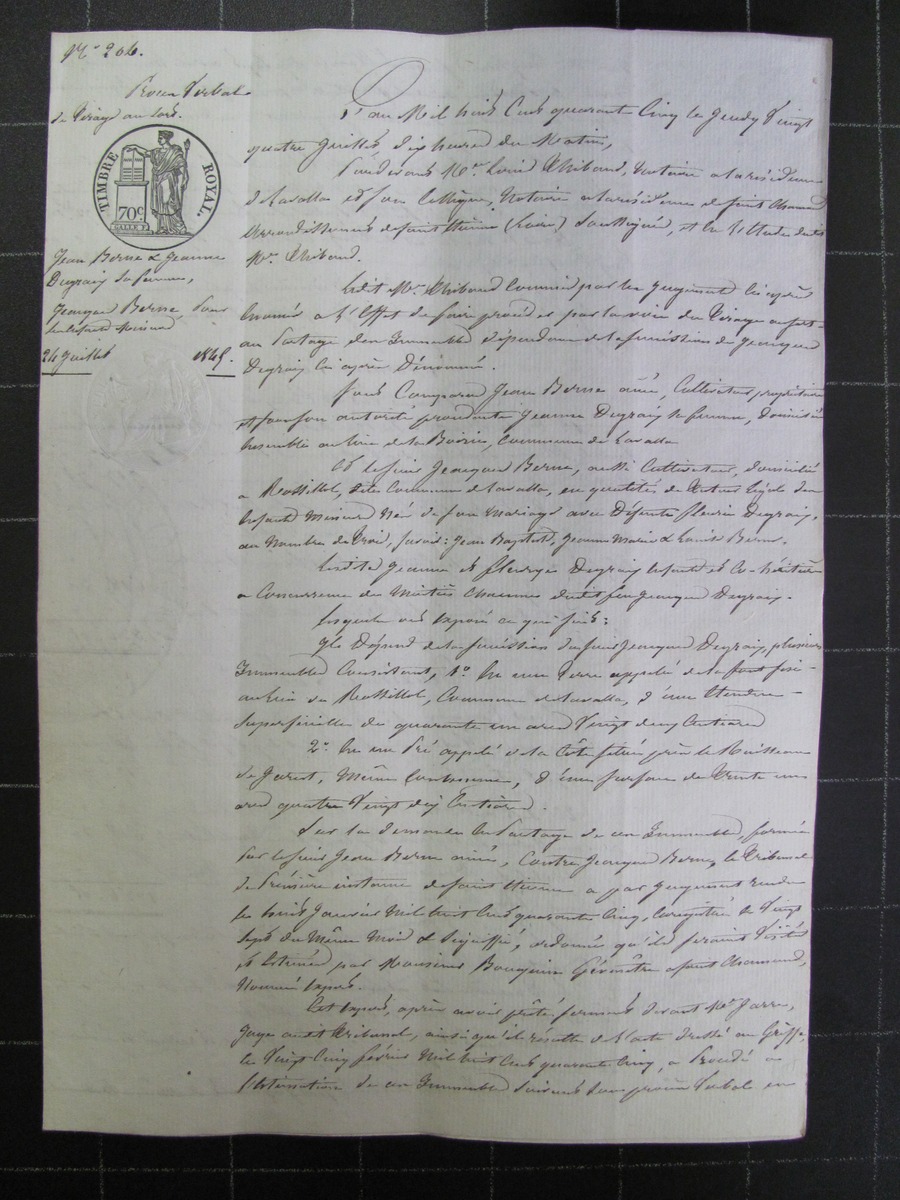 N° 206.
Procès Verbal
de Tirage au sort.
TIMBRE ROYAL.
70c
SALLE
Jean Berne & Jeanne
Degraix sa femme,
Jacques Berne, pour
les enfants mineurs
24 Juillet 1845.
L'an Mil huit Cent quarante Cinq le Jeudy Vingt
quatre Juillet, dix heures du Matin,
Pardevant Me Louis Thibaud, Notaire à la résidence
de Lavalla et son Collègue, Notaire à la résidence de Saint Chamond
Arrondissement de Saint Etienne (Loire) Soussignés, et en l'étude dudit
Me Thibaud.
Ledit Me Thibaud Commis par le Jugement ci après
énoncé à l'Effet de faire procéder par la voie du Tirage au sort
au Partage des Immeubles dépendant de la succession de Jacques
Degraix ci après Dénommé.
Sont Comparus Jean Berne ainé, Cultivateur propriétaire
et sous son autorité procédante Jeanne Degraix sa femme, Domiciliés
Ensemble au lieu de la Commune de Lavalla
Et le sieur Jacques Berne, aussi Cultivateur, domicilié
à Rossillol, dite Commune de Lavalla, en qualité de Tuteur légal des
Enfants Mineurs Nés de son Mariage avec Défunte fleurie Degraix,
au Nombre de Trois, savoir: Jean Baptiste, Jeanne Marie & Louis Berne.
Lesdites Jeanne et fleurie Degraix Enfants et Co-héritières
à Concurrence de Moitié Chacune dudit feu Jacques Degraix.
Lesquels ont Exposé ce qui suit:
Il Dépend de la succession du sieur Jacques Degraix, plusieurs
Immeubles Consistant, 1° En une Terre appelée de la font sise
au lieu de Rossillol, Commune de Lavalla, d'une Etendue
superficielle de quarante un ares Vingt deux Centiares
2° En un Pré appelé de la Côte situé près le Ruisseau
de Jarret, Même Commune, d'une surface de Trente un
ares quatre Vingt dix Centiares.
Sur la demande En Partage de ces Immeubles, formée
par le sieur Jean Berne ainé, Contre Jacques Berne, le Tribunal
de Première instance de Saint Etienne a par Jugement rendu
le huit Janvier Mil huit Cent quarante Cinq, Enregistré le Vingt
sept du Même Mois & Signifié, ordonné qu'ils seraient Visités
et Estimés par Monsieur Géomètre à Saint Chamond,
Nommé Expert.
Cet Expert, après avoir prêté serment devant Mr Jarre,
Juge audit Tribunal, ainsi qu'il résulte de l'acte Dressé au Greffe,
le Vingt Cinq février Mil huit Cent quarante Cinq, a Procédé à
l'Estimation de ces Immeubles suivant son procès Verbal en